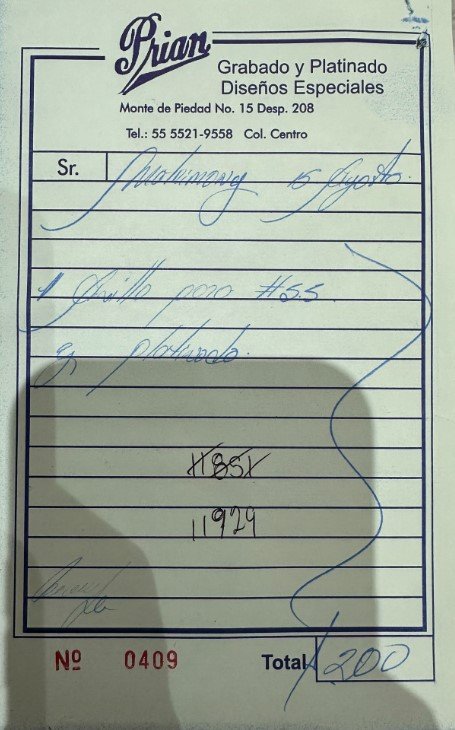 Prian
Grabado y Platinado
Diseños Especiales
Monte de Piedad No. 15 Desp. 208
Tel.: 55 5521-9558 Col. Centro
Sr.
15 Agosto.
1 Anillo para #5.5.
platinado.
11929
Nº 0409
Total 200